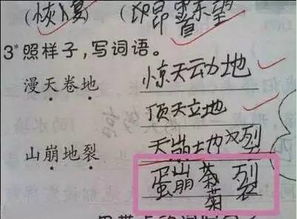 (恢复) (即昂首东望
3*照样子,写词语。
漫天卷地 惊天动地
顶天立地
山崩地裂 天崩地裂
蛋崩菊裂
菊